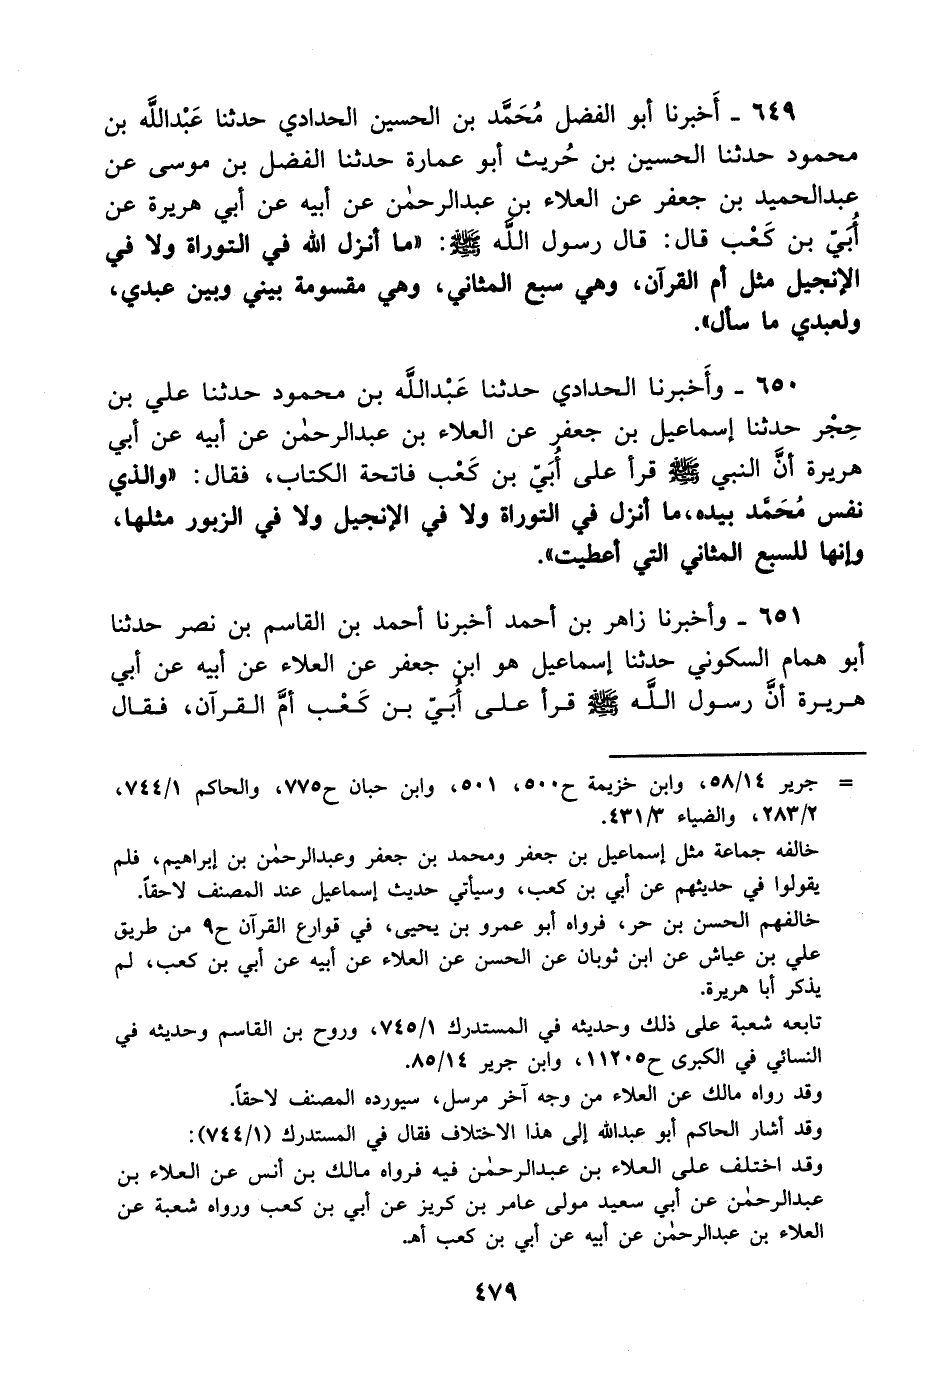 ٦٤٩ ـ أَخبرنا أبو الفضل مُحَمَّد بن الحسين الحدادي حدثنا عَبْداللَّه بن
محمود حدثنا الحسين بن حُريث أبو عمارة حدثنا الفضل بن موسى عن
عبدالحميد بن جعفر عن العلاء بن عبدالرحمٰن عن أبيه عن أبي هريرة عن
أُبَيّ بن كَعْب قال: قال رسول اللَّه ﷺ: «ما أنزل الله في التوراة ولا في
الإنجيل مثل أم القرآن، وهي سبع المثاني، وهي مقسومة بيني وبين عبدي،
ولعبدي ما سأل».
٦٥٠ ـ وأَخبرنا الحدادي حدثنا عَبْداللَّه بن محمود حدثنا علي بن
حِجْر حدثنا إسماعيل بن جعفر عن العلاء بن عبدالرحمٰن عن أبيه عن أبي
هريرة أنَّ النبي ﷺ قرأ على أُبَيّ بن كَعْب فاتحة الكتاب، فقال: «والذي
نفس مُحَمَّد بيده،ما أنزل في التوراة ولا في الإنجيل ولا في الزبور مثلها،
وإنها للسبع المثاني التي أعطيت».
٦٥١ ـ وأخبرنا زاهر بن أحمد أخبرنا أحمد بن القاسم بن نصر حدثنا
أبو همام السكوني حدثنا إسماعيل هو ابن جعفر عن العلاء عن أبيه عن أبي
هريرة أنَّ رسول اللَّه ﷺ قرأ على أُبَيّ بن كَعْب أمَّ القرآن، فقال
= جرير ٥٨/١٤، وابن خزيمة ح٥٠٠، ٥٠١، وابن حبان ح٧٧٥، والحاكم ٧٤٤/١،
٢٨٣/٢، والضياء ٤٣١/٣.
خالفه جماعة مثل إسماعيل بن جعفر ومحمد بن جعفر وعبدالرحمٰن بن إبراهيم، فلم
يقولوا في حديثهم عن أبي بن كعب، وسيأتي حديث إسماعيل عند المصنف لاحقاً.
خالفهم الحسن بن حر، فرواه أبو عمرو بن يحيى، في قوارع القرآن ح٩ من طريق
علي بن عياش عن ابن ثوبان عن الحسن عن العلاء عن أبيه عن أبي بن كعب، لم
يذكر أبا هريرة.
تابعه شعبة على ذلك وحديثه في المستدرك ٧٤٥/١، وروح بن القاسم وحديثه في
النسائي في الكبرى ح١١٢٠٥، وابن جرير ٨٥/١٤.
وقد رواه مالك عن العلاء من وجه آخر مرسل، سيورده المصنف لاحقاً.
وقد أشار الحاكم أبو عبدالله إلى هذا الاختلاف فقال في المستدرك (٧٤٤/١):
وقد اختلف على العلاء بن عبدالرحمٰن فيه فرواه مالك بن أنس عن العلاء بن
عبدالرحمٰن عن أبي سعيد مولى عامر بن كريز عن أبي بن كعب ورواه شعبة عن
العلاء بن عبدالرحمٰن عن أبيه عن أبي بن كعب أهـ.
٤٧٩